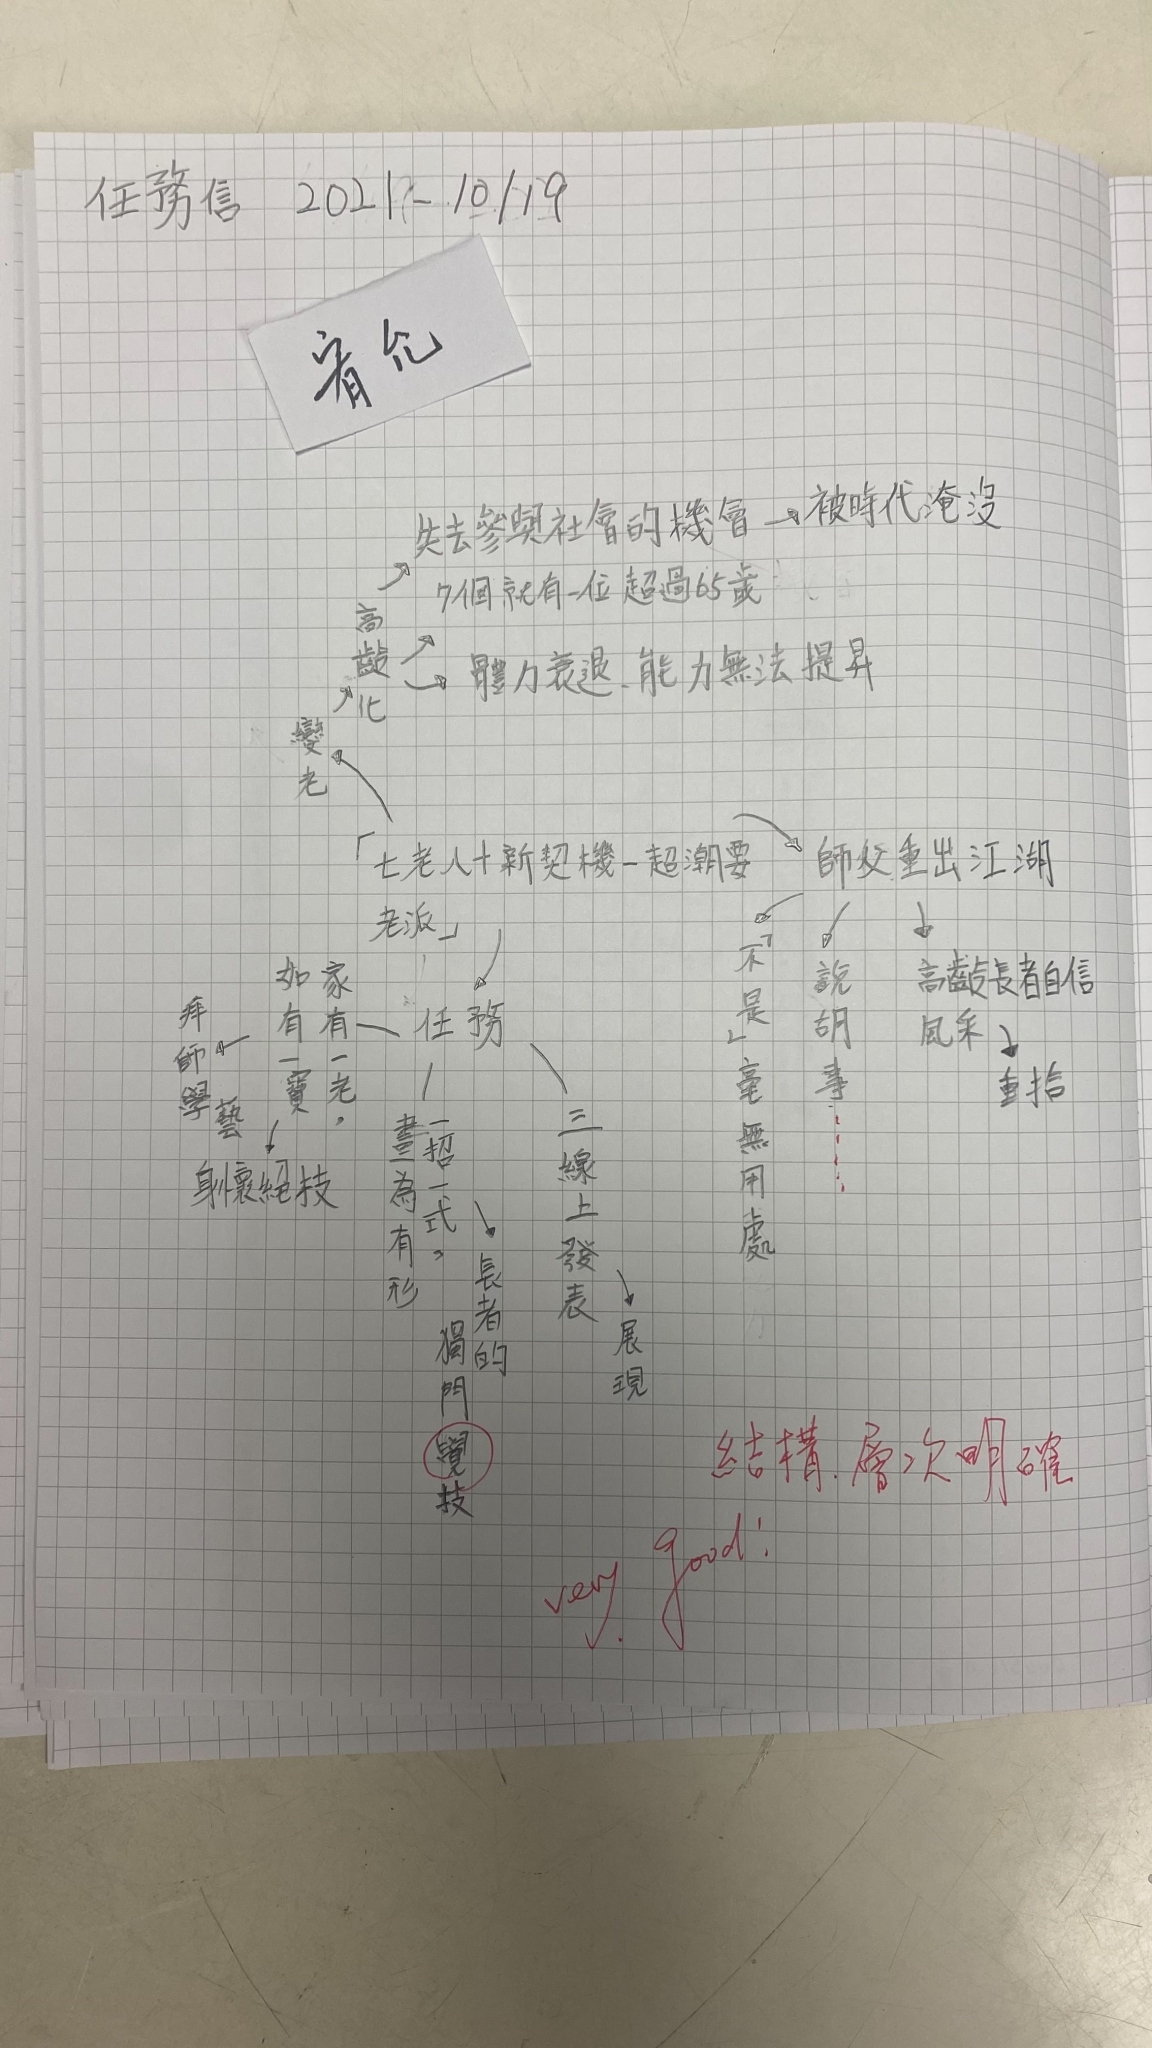 任務信 2021-10/19
宥允
失去參與社會的機會→被時代淹沒
7個就有一位超過65歲
高齡化
體力衰退、能力無法提昇
變老
「七老八十新契機－超潮耍
老派」
師父重出江湖
「不是」毫無用處
說胡事
高齡長者自信
風采
重拾
任務
家有一老，
如有一寶
拜師學藝
身懷絕技
一招一式，
畫為有形
長者的
獨門覺技
三線上發表
展現
結構、層次明確
very good!